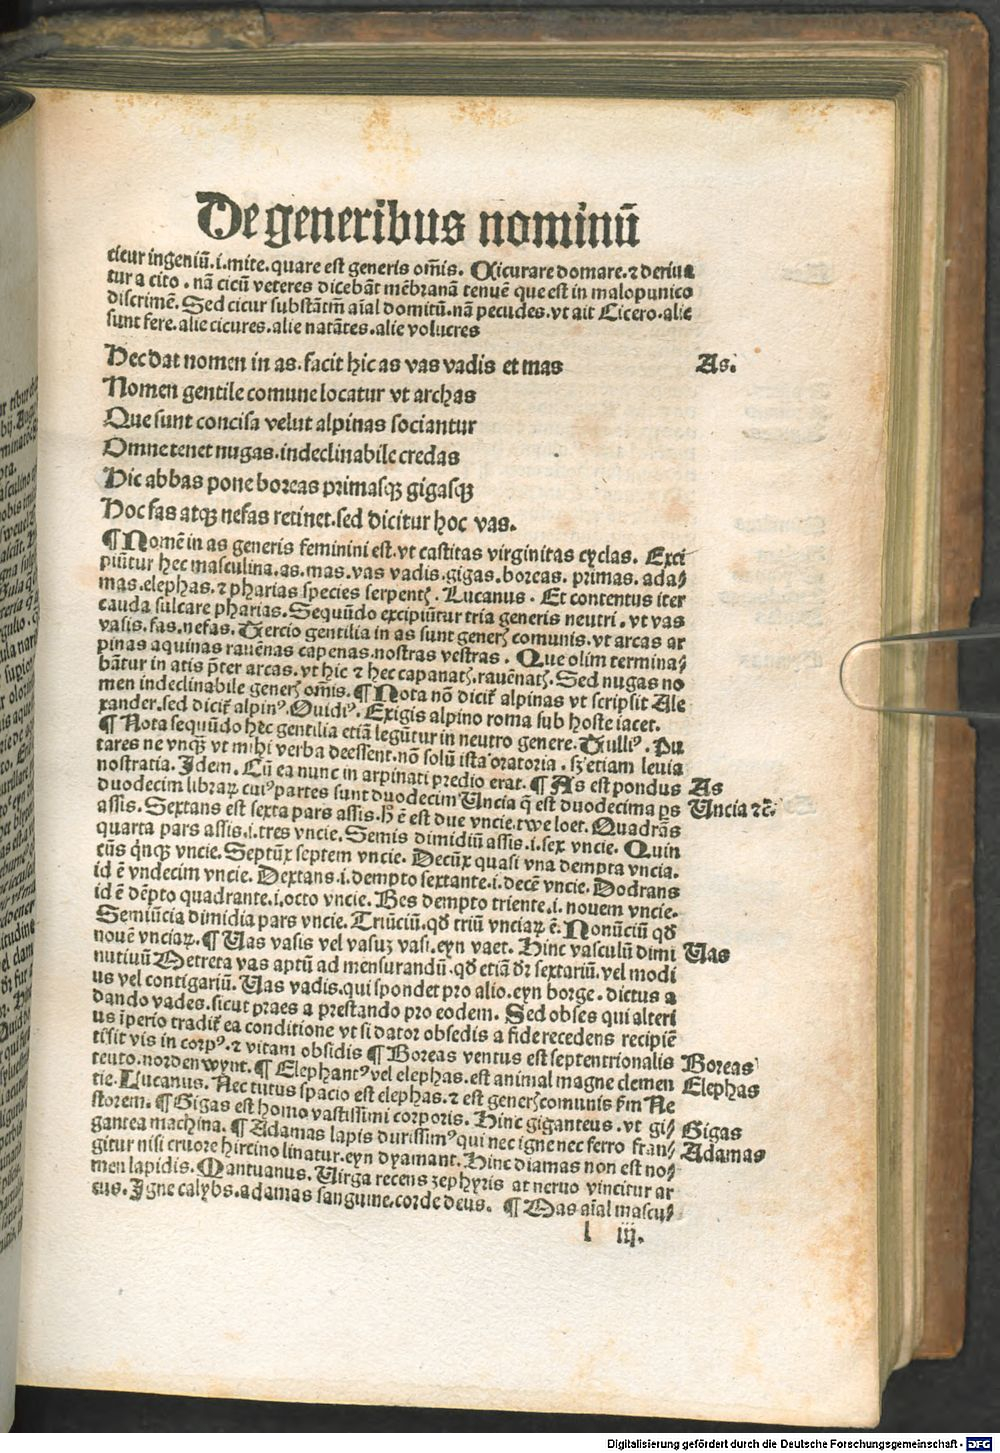 De generibus nominū
cicur ingeniū.i.mite.quare est generis om̄is. Cicurare domare.⁊ deriua
tur a cito.nā cicū veteres dicebāt mēbranā tenuē que est in malopunico
discrimē. Sed cicur substāt̄m aīal domitū.nā pecudes.vt ait Cicero.alie
sunt fere.alie cicures.alie natātes.alie volucres
Hec dat nomen in as.facit hic as vas vadis et mas
As.
Nomen gentile comune locatur vt archas
Que sunt concisa velut alpinas sociantur
Omne tenet nugas.indeclinabile credas
Hic abbas pone boreas primasqꝫ gigasqꝫ
Hoc fas atqꝫ nefas retinet.sed dicitur hoc vas.
¶ Nomē in as generis feminini est.vt castitas virginitas cyclas. Exci
piūtur hec masculina.as.mas.vas vadis.gigas.boreas. primas.ada⸗
mas.elephas.⁊ pharias species serpentꝭ. Lucanus. Et contentus iter
cauda sulcare pharias. Sequūdo excipiūtur tria generis neutri.vt vas
vasis.fas.nefas. Tercio gentilia in as sunt generꝭ comunis.vt arcas ar
pinas aquinas rauēnas capenas.nostras vestras. Que olim termina⸗
bātur in atis p̄ter arcas.vt hic ⁊ hec capanatꝭ.rauēnatꝭ. Sed nugas no
men indeclinabile generꝭ om̄is. ¶ Nota nō dicit̄ alpinas vt scripsit Ale
xander.sed dicit̄ alpinꝰ. Ouidiꝰ. Exigis alpino roma sub hoste iacet.
¶ Nota sequūdo hec gentilia etiā legūtur in neutro genere. Tulliꝰ. Pu
tares ne vnqꝫ vt mihi verba deessent.nō solū ista oratoria.sꝫ etiam leuia
nostratia. Idem. Cū ea nunc in arpinati predio erat. ¶ As est pondus
As
duodecim librarꝫ cuiꝰ partes sunt duodecim Uncia q̄ est duodecima ps
Uncia ⁊c̄.
assis. Sextans est sexta pars assis.h̄ ē est due vncie.twe loet. Quadrās
quarta pars assis.i.tres vncie. Semis dimidiū assis.i.sex vncie. Quin
cūs q̄nqꝫ vncie. Septūx septem vncie. Decūx quasi vna dempta vncia.
id ē vndecim vncie. Dextans.i.dempto sextante.i.decē vncie. Dodrans
id ē dēpto quadrante.i.octo vncie. Bes dempto triente.i. nouem vncie.
Semiūcia dimidia pars vncie. Triūciū.qď triū vnciarꝫ ē. Nonūciū qď
nouē vnciarꝫ. ¶ Uas vasis vel vasuꝫ vasi.eyn vaet. Hinc vasculū dimi
Uas
nutiuū Metreta vas aptū ad mensurandū.qď etiā dr̄ sextariū.vel modi
us vel contigariū. Uas vadis.qui spondet pro alio.eyn borge.dictus a
dando vades.sicut praes a prestando pro eodem. Sed obses qui alteri
us īperio tradit̄ ea conditione vt si dator obsedis a fide recedens recipiē
ti sit vis in corpꝰ.⁊ vitam obsidis ¶ Boreas ventus est septentrionalis
Boreas
teuto.norden wynt. ¶ Elephantꝰ vel elephas.est animal magne clemen
Elephas
tie. Lucanus. Nec tutus spacio est elephas.⁊ est generꝭ comunis ẜm Ne
storem. ¶ Gigas est homo vastissimi corporis. Hinc giganteus.vt gi⸗
Gigas
gantea machina. ¶ Adamas lapis durissimꝰ qui nec igne nec ferro fran⸗
Adamas
gitur nisi cruore hircino linatur.eyn dyamant. Hinc diamas non est no⸗
men lapidis. Mantuanus. Uirga recens zephyris at neruo vincitur ar
cus. Igne calybs.adamas sanguine.corde deus. ¶ Mas aīal mascu⸗
l iij.
Digitalisierung gefördert durch die Deutsche Forschungsgemeinschaft - DFG